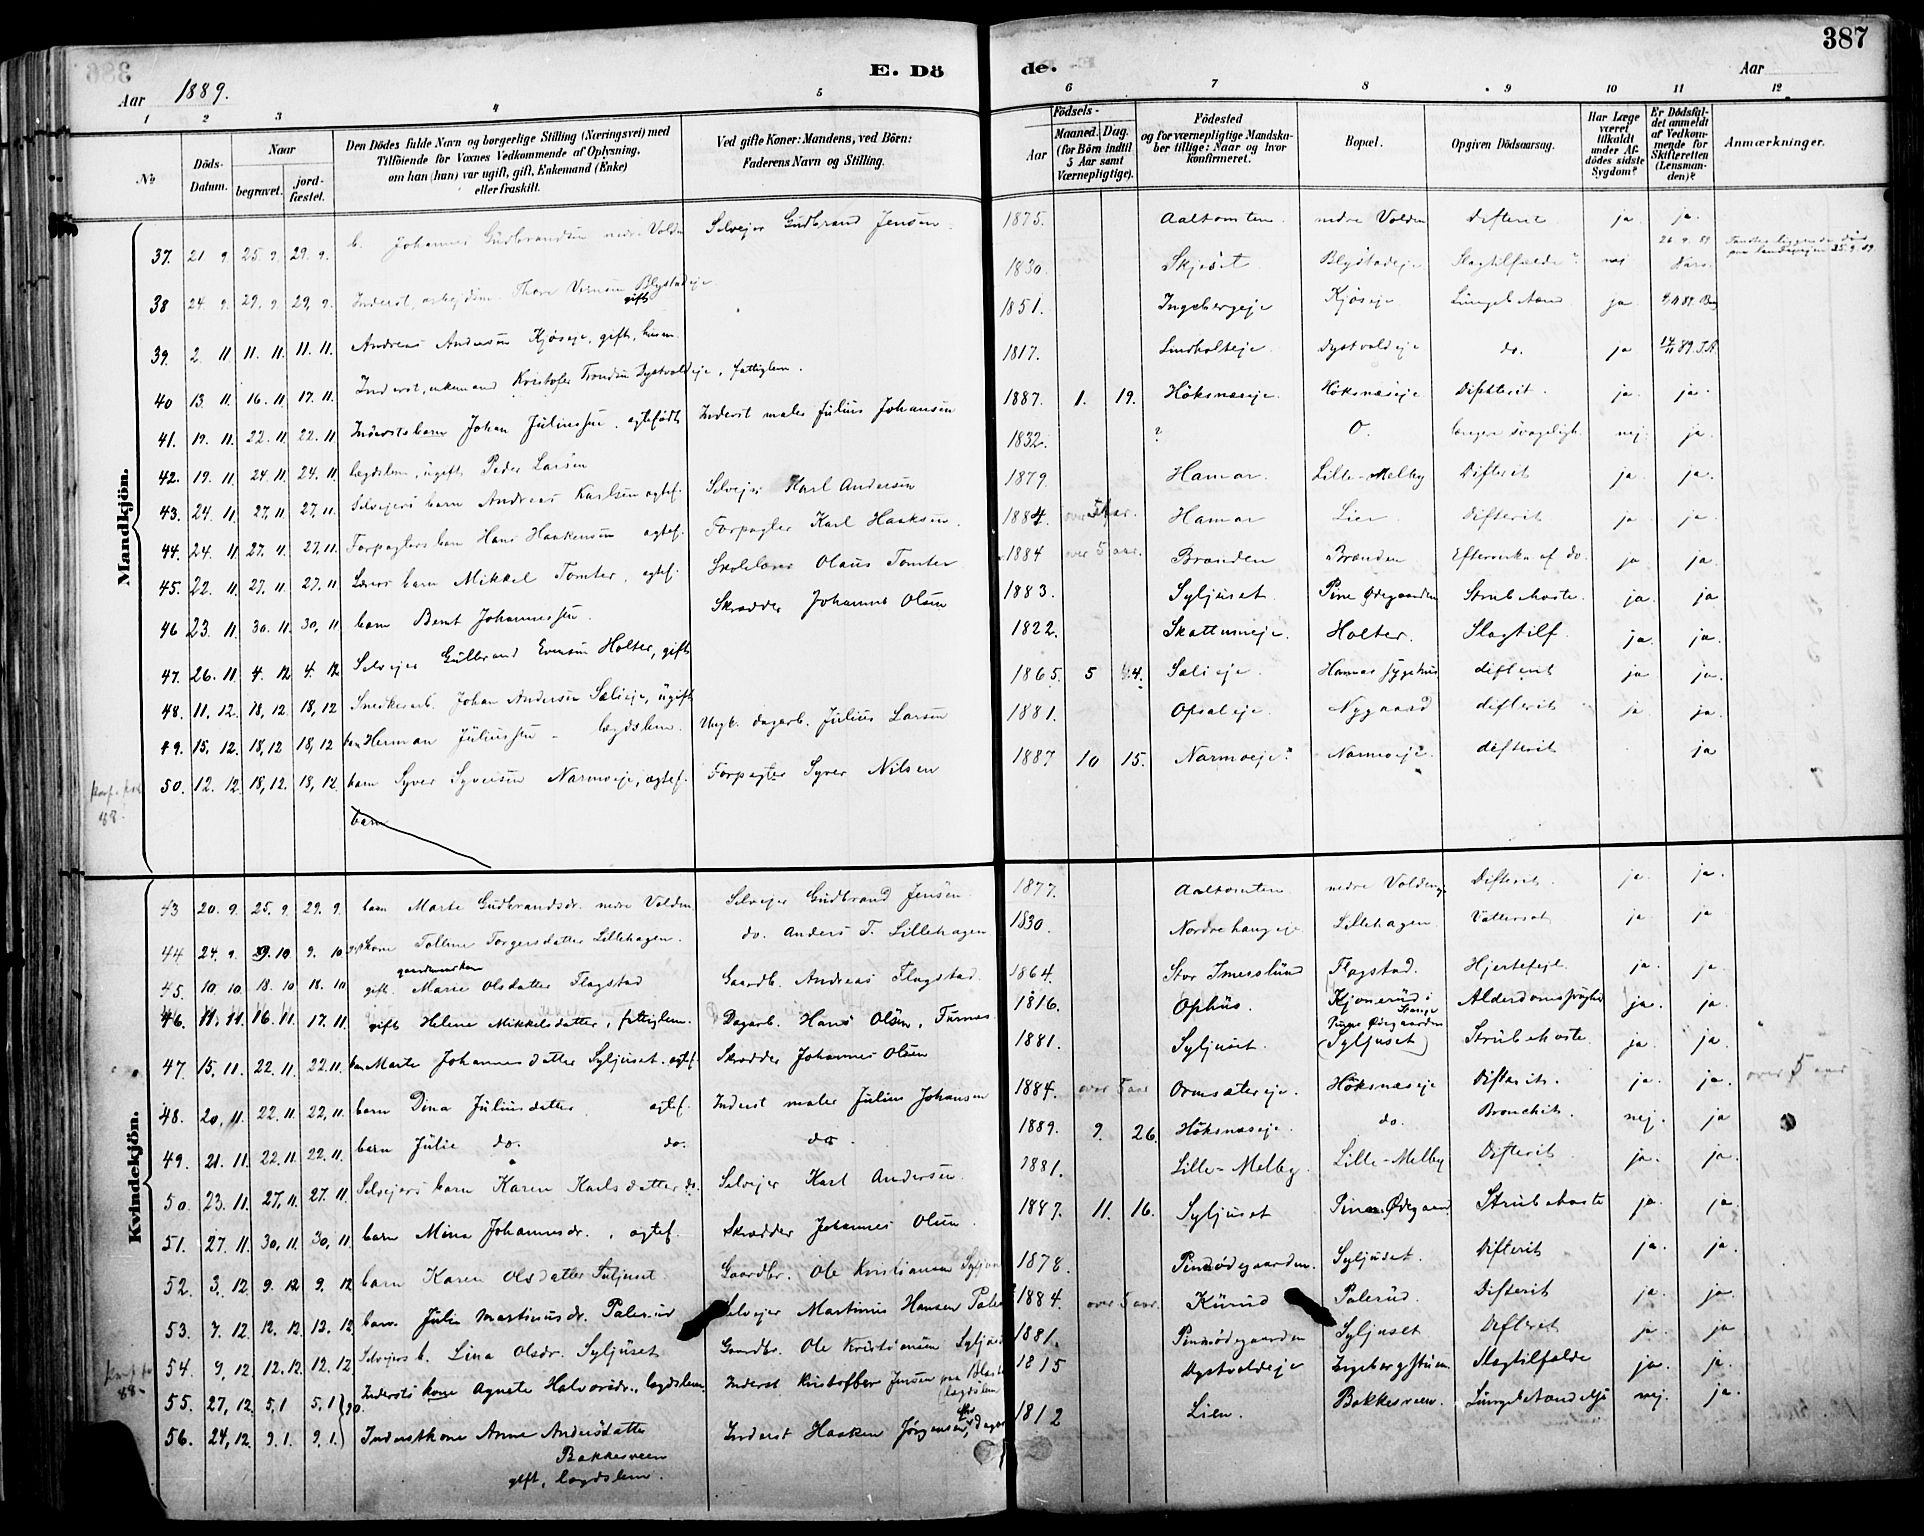 387
E. Dö de.
Aar 1889. Aar
1 2 3 4 5 6 7 8 9 10 11 12
No
Döds-Datum.
Naar begravet. jordfæstet.
Den Dödes fulde Navn og borgerlige Stilling (Næringsvei) med Tilföiende for Voxnes Vedkommende af Oplysning, om han (hun) var ugift, gift, Enkemand (Enke) eller fraskilt.
Ved gifte Koner: Mandens, ved Börn: Faderens Navn og Stilling.
Födsels-
Aar Maaned. Dag. (for Börn indtil 5 Aar samt Værnepligtige).
Födested og for værnepligtige Mandskaber tillige: Naar og hvor konfirmeret.
Bopæl.
Opgiven Dödsaarsag.
Har Læge været tilkaldt under Afdödes sidste Sygdom?
Er Dödsfaldet anmeldt af Vedkommende for Skifteretten (Lensmanden)?
Anmærkninger.
Mandkjön.
37. 21 9. 25 9. 29. 9. b. Johannes Gudbrandsen nedre Volden Selvejer Gudbrand Jensen. 1875. Aaltomten nedre Volden Difterit ja ja.
38 24 9. 29. 9. 29, 9. Inderst, arbejdsm. Thore Blystadeje gift 1830. Skjeset Blystadeje Slagtilfælde nej 26 9 89
39. 2 11. 11. 11. 11. 11. Andreas Andersen Kjöseje, gift, husm. 1851. Ingebergeje Kjöseje Lungebetænd. ja
40 13. 11. 16. 11 17. 11. Inderst, enkemand Kristofer Trondsen Dystvoldeje, fattiglem. 1817. Lundholteje Dystvoldeje do. ja
41. 19. 11. 22. 11. 22 11. Inderstsbarn Johan Juliussen. ægtefödt Inderst maler Julius Johansen 1887. 1. 19. Höksnæseje. Höksnæseje Difterit. ja. ja.
42. 19. 11. 24 11 24. 11. lægdslem, ugift Peder Larsen 1832. ? O. længere svageligh. nej. ja.
43. 24. 11. 27. 11 27. 11. Selvejers barn Andreas Karlsen ægtef. Selvejer Karl Andersen 1879. Hamar. Lille-Melby Difterit ja ja.
44. 24. 11 27. 11. 27. 11. Forpagters barn Hans Haakensen ægtef. Forpagter Karl Haaksen. 1884. over 5 aar. Hamar Lier Difterit ja ja.
45. 22. 11. 27. 11. 27 11. Lærers barn Mikkel Tomter, ægtef. Skolelærer Olaus Tomter 1884 over 5 aar. Brænden Brænden Eftervirkn. af do. ja ja.
46 23. 11. 30. 11. 30, 11. barn Bernt Johannessen. Skrædder Johannes Olsen 1883. Syljuset. Pine Ødegaarden Strubehoste. ja. ja
47. 26. 11. 4. 12 4. 12 Selvejer Gulbrand Evensen Holter, gift 1822. Skattumeje. Holter. Slagtilf. ja. ja.
48. 11. 12. 18, 12 18, 12 Snedkerarb. Johan Andersen Sælieje, ugift 1865. 5 4. Sælieje. Hamar Sygehus difterit ja ja.
49. 15. 12. 18, 12 18, 12 barn Herman Juliussen - lægdslem. Ungk. dagarb. Julius Larsen 1881. Opsaleje. Nygaard difterit ja ja.
50. 12. 12. 18, 12. 18, 12. barn Syver Syversen Narmoeje, ægtef. Forpagter Syver Nilsen 1887 10 15. Narmoeje Narmoeje. difterit ja
88.
barn
Kvindekjön.
43 20. 9. 25. 9. 29. 9. barn Marte Gudbrandsdr. nedre Volden Selvejer Gudbrand Jensen. 1877. Aaltomten nedre Volden Difterit. ja. ja.
44 24. 9. 9. 10 9. 10 gift kone Tolline Torgersdatter Lillehagen. do. Anders T. Lillehagen 1830. Nordrehaugeje Lillehagen. Vattersot ja ja
45. 10. 10. 18. 10 18. 10 gaardmandskone gift. Marie Olsdatter Flagstad Gaardb. Andreas Flagstad. 1864. Stor Imeslund Flagstad. Hjertefejl. ja. ja.
46. 11. 11. 16. 11. 17. 11. gift Helene Mikkelsdatter, fattiglem. Dagarb. Hans Olsen, Furnæs 1816. Ophus. Kjonerud i Stange Alderdomssvaghed ja. ja.
47. 15, 11. 22. 11. 22. 11. barn Marte Johannesdatter Syljuset. ægtef. Skrædder Johannes Olsen 1881. Syljuset. Pine Ødegaarden (Syljuset) Strubehoste. ja. ja.
48. 20, 11. 22. 11. 22, 11. barn Dina Juliusdatter, ægtef. Inderst maler Julius Johansen 1884. over 5 aar Ormsætereje. Höksnæseje Difterit. ja. ja. over 5 aar
49. 21. 11. 22 11. 22. 11. barn Julie do. do. do. 1889. 9. 26. Höksnæseje. do. Bronchit. nej. ja
50. 23. 11. 27, 11. 27. 11. Selvejers barn Karen Karlsdatter do. Selvejer Karl Andersen. 1881. Lille-Melby. Lille-Melby Difterit. ja. ja.
51. 27. 11. 30, 11. 30, 11. barn Mina Johannesdr., ægtef. Skrædder Johannes Olsen. 1887. 11. 16. Syljuset Pine Ødegaard Strubehoste ja. ja.
52. 3, 12. 9. 12 9, 12 barn Karen Olsdatter Syljuset. Gaardbr. Ole Kristiansen Syljuset 1878. Pineødegaarden. Syljuset. Difterit ja. ja.
53. 7. 12. 12. 12. 12. 12. barn. Julie Martinusdr. Palerud Selvejer Martinus Hansen Palerud 1884. over 5 aar. Kurud Palerud. Difterit. ja. ja.
54. 9, 12. 12. 12. 12. 12 Selvejers b. Lina Olsdr. Syljuset Gaardbr. Ole Kristiansen Syljuset 1881. Pineødegaarden Syljuset Difterit ja. ja
88.
55. 27, 12. 5, 1 5, 1 90. Indersts kone Agnete Halvorsdr., lægdslem. Inderst Kristoffer Jensen lægdslem 1815 Dystvoldeje Ingebergstuen Slagtilfælde ja. ja.
56. 24, 12. 9. 1. 9, 1. Inderstkone Anne Andersdatter Bakkesveen gift, lægdslem. Inderst Haaken Jörgensen, 1812 Lien. Bakkesveen. Lungebetændelse nej. ja.